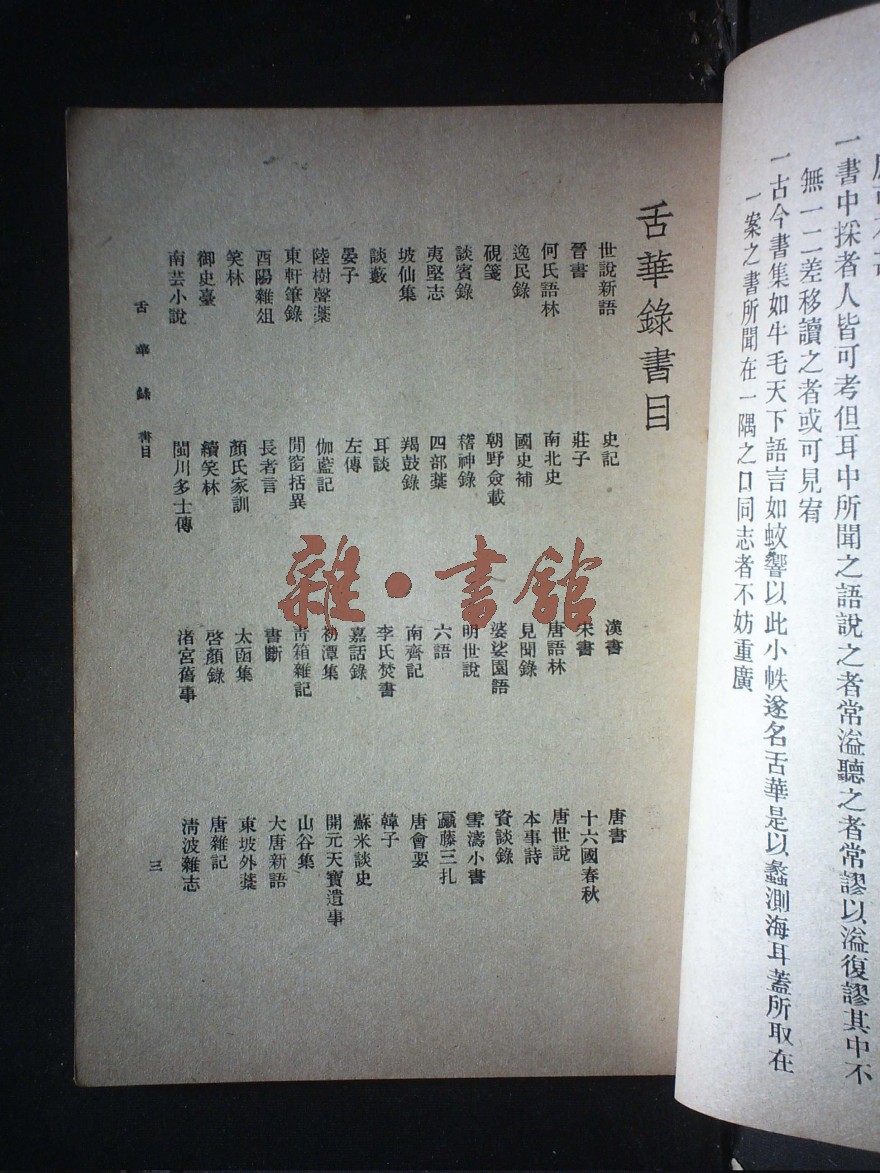 一書中採者人皆可考但耳中所聞之語說之者常溢聽之者常謬以溢復謬其中不
無一二差移讀之者或可見宥
一古今書集如牛毛天下語言如蚊響以此小帙遂名舌華是以蠡測海耳蓋所取在
一案之書所聞在一隅之口同志者不妨重廣
舌華錄書目
世說新語 史記 漢書 唐書
晉書 莊子 宋書 十六國春秋
何氏語林 南北史 唐語林 唐世說
逸民錄 國史補 見聞錄 本事詩
硯箋 朝野僉載 婆娑園語 資談錄
談賓錄 稽神錄 明世說 雪濤小書
夷堅志 四部藁 六語 藤三扎
坡仙集 羯鼓錄 南齊記 唐會要
談藪 耳談 李氏焚書 韓子
晏子 左傳 嘉話錄 蘇米談史
陸樹聲藁 伽藍記 初潭集 開元天寶遺事
東軒筆錄 閒窗括異 青箱雜記 山谷集
酉陽雜俎 長者言 書斷 大唐新語
笑林 顏氏家訓 太函集 東坡外藁
御史臺 續笑林 啓顏錄 唐雜記
南芸小說 閩川多士傳 渚宮舊事 清波雜志
舌華錄 書目
三
雜·書館